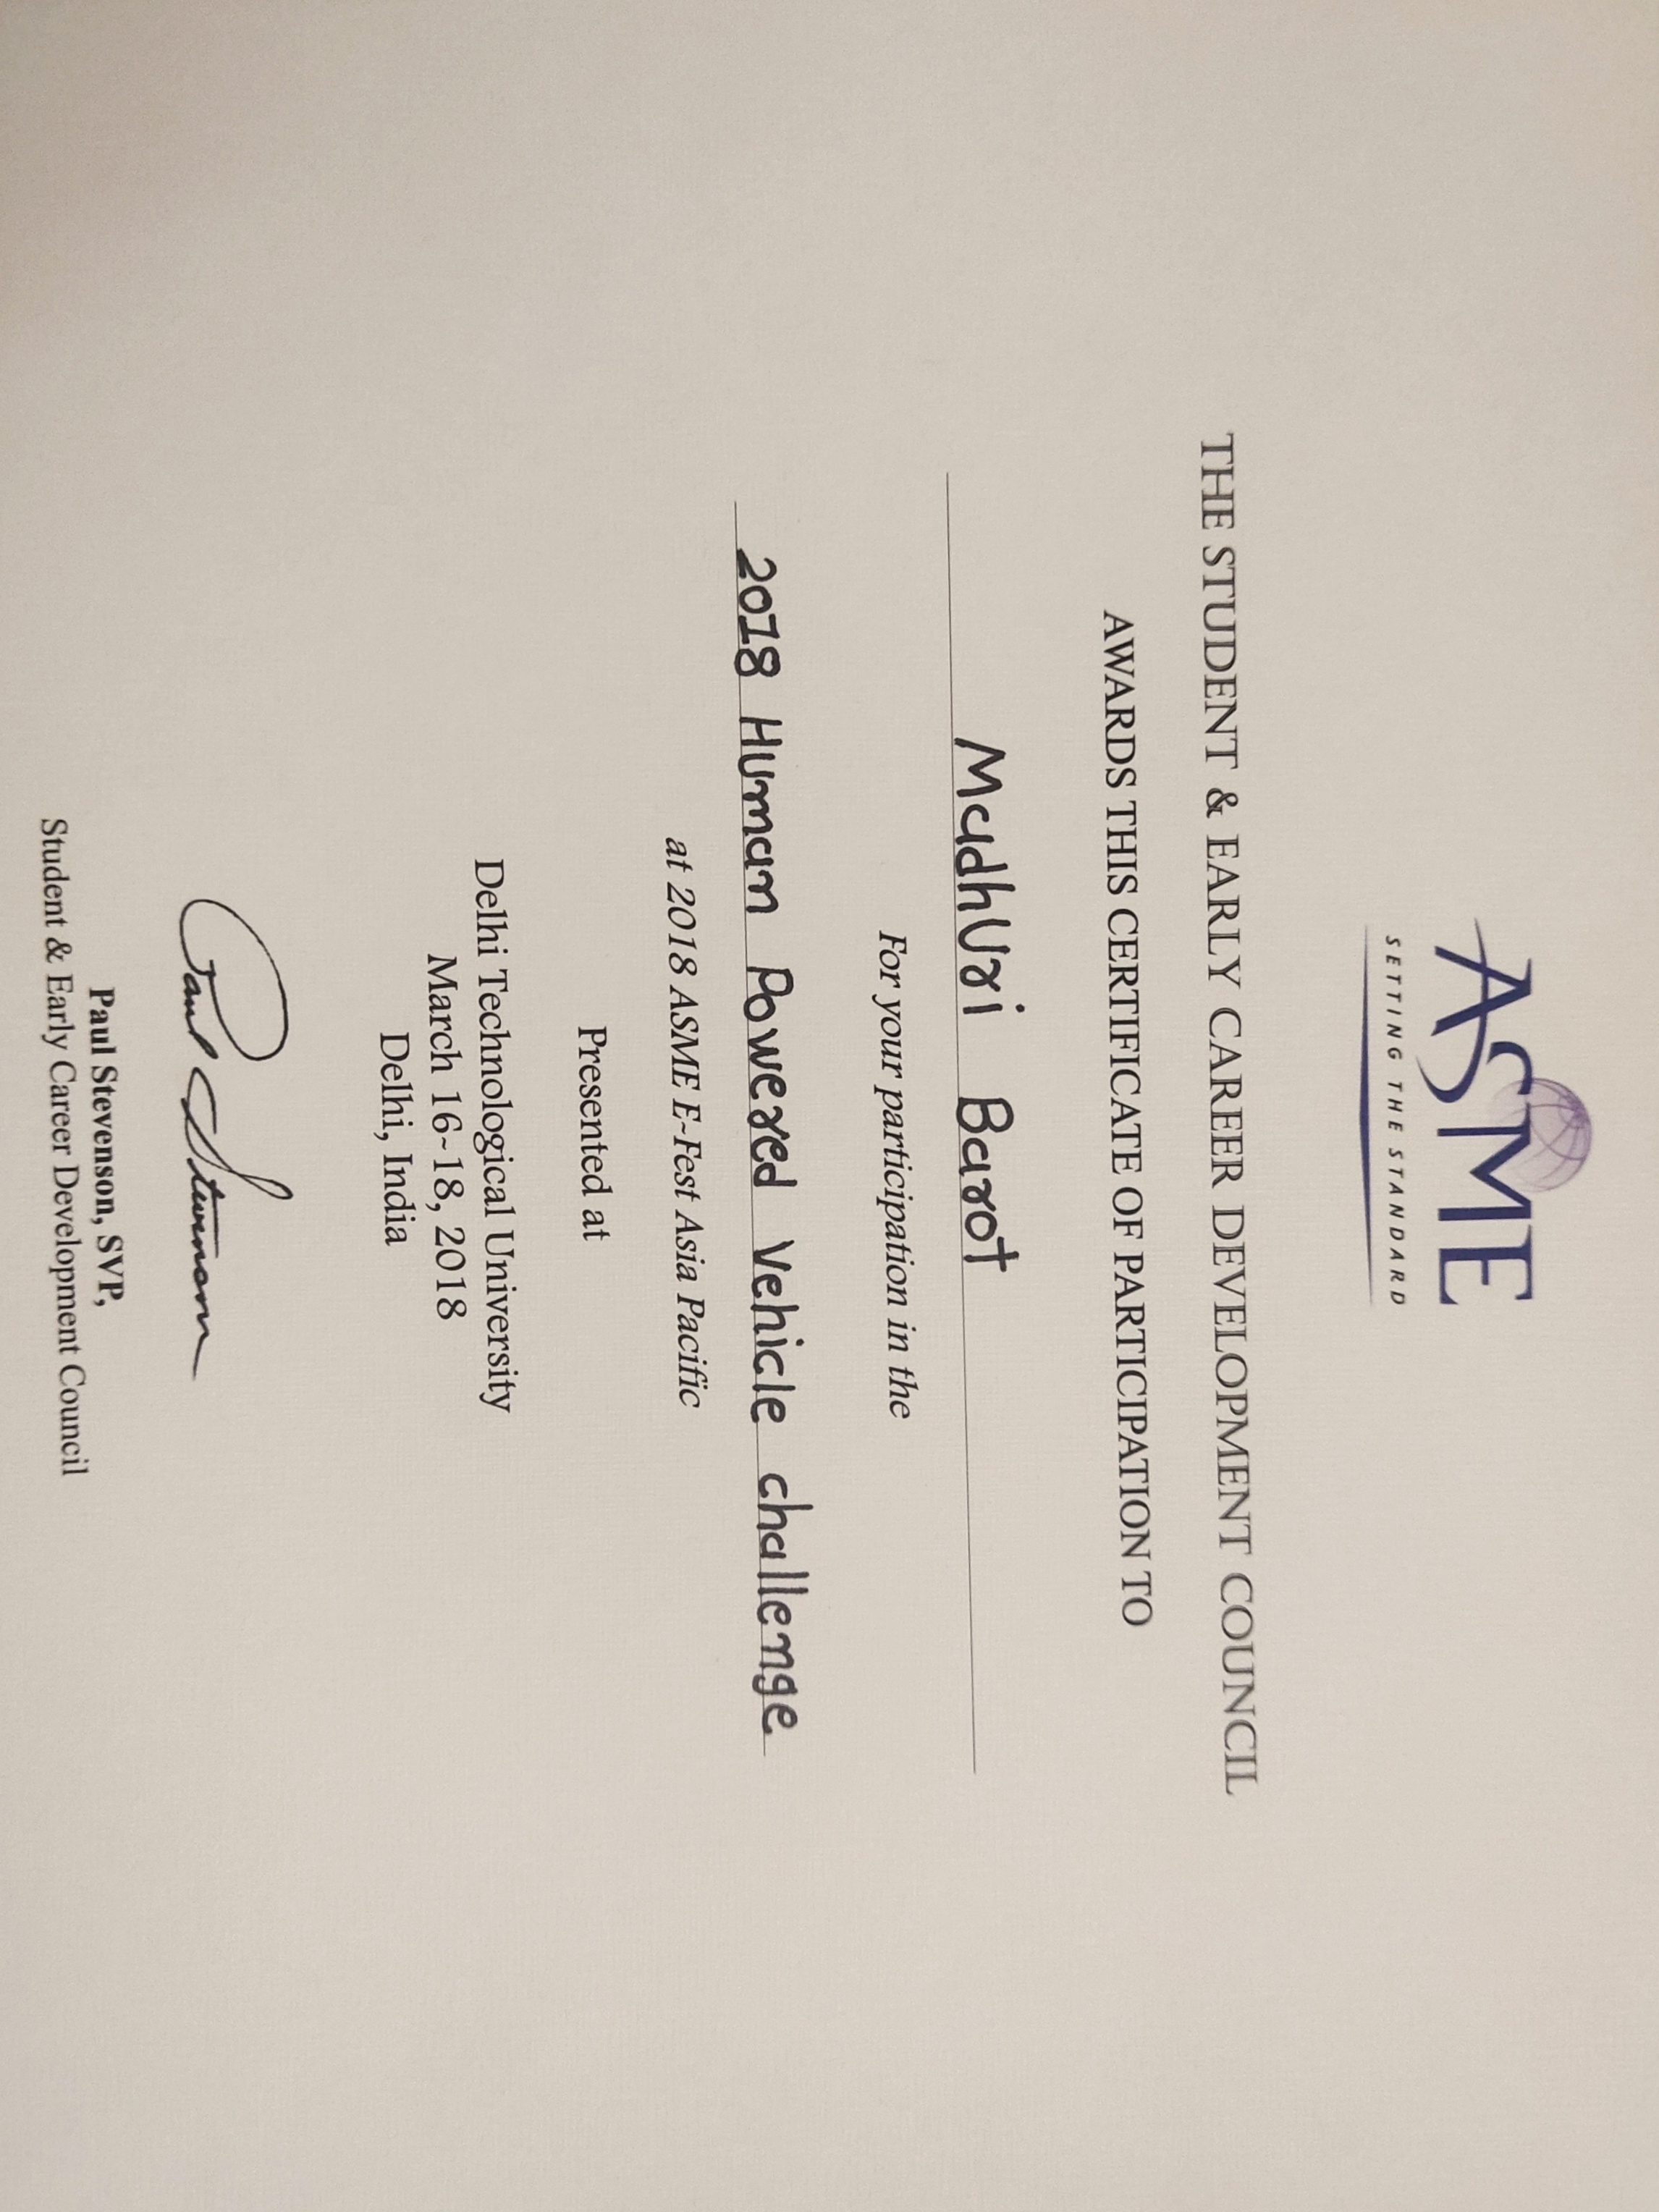 ASME
SETTING THE STANDARD
THE STUDENT & EARLY CAREER DEVELOPMENT COUNCIL
AWARDS THIS CERTIFICATE OF PARTICIPATION TO
MadhUri Barot
For your participation in the
2018 HUman Powered Vehicle challenge
at 2018 ASME E-Fest Asia Pacific
Presented at
Delhi Technological University
March 16-18, 2018
Delhi, India
Paul Stevenson
Paul Stevenson, SVP,
Student & Early Career Development Council